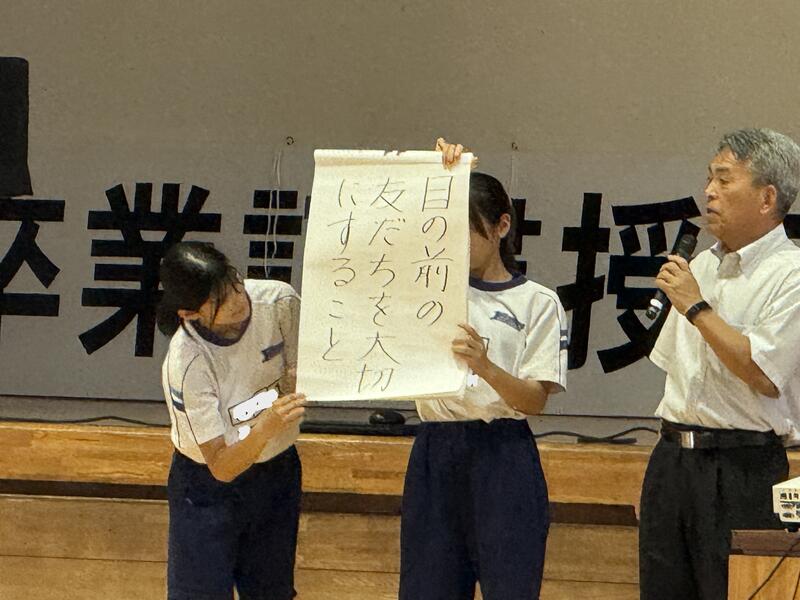 目の前の
友だちを大切
にすること
卒業証書授